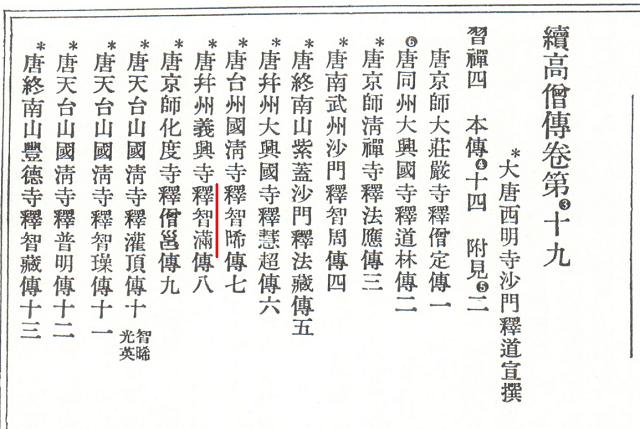 續高僧傳卷第❸十九
*大唐西明寺沙門釋道宣撰
習禪四 本傳❹十四 附見❺二
唐京師大莊嚴寺釋僧定傳一
❻唐同州大興國寺釋道林傳二
*唐京師清禪寺釋法應傳三
*唐南武州沙門釋智周傳四
*唐終南山紫蓋沙門釋法藏傳五
*唐幷州大興國寺釋慧超傳六
*唐台州國清寺釋智晞傳七
*唐幷州義興寺釋智滿傳八
*唐京師化度寺釋僧邕傳九
*唐天台山國清寺釋灌頂傳十 智晞 光英
*唐天台山國清寺釋智璪傳十一
*唐天台山國清寺釋普明傳十二
*唐終南山豐德寺釋智藏傳十三